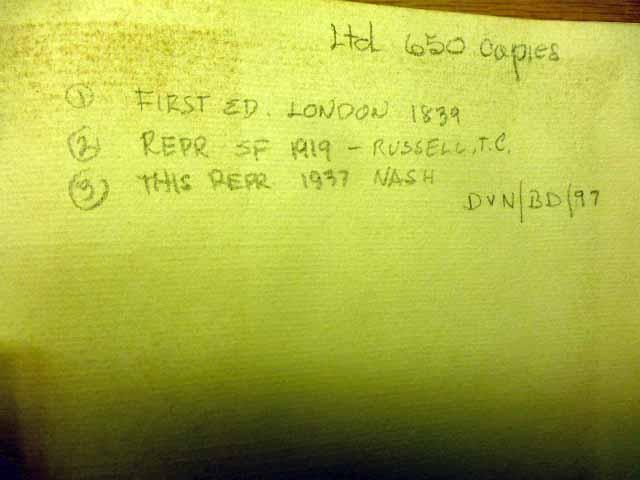 Ltd 650 copies
① FIRST ED. LONDON 1839
② REPR SF 1919 - RUSSELL, T.C.
③ THIS REPR 1937 NASH
DVN/BD/97